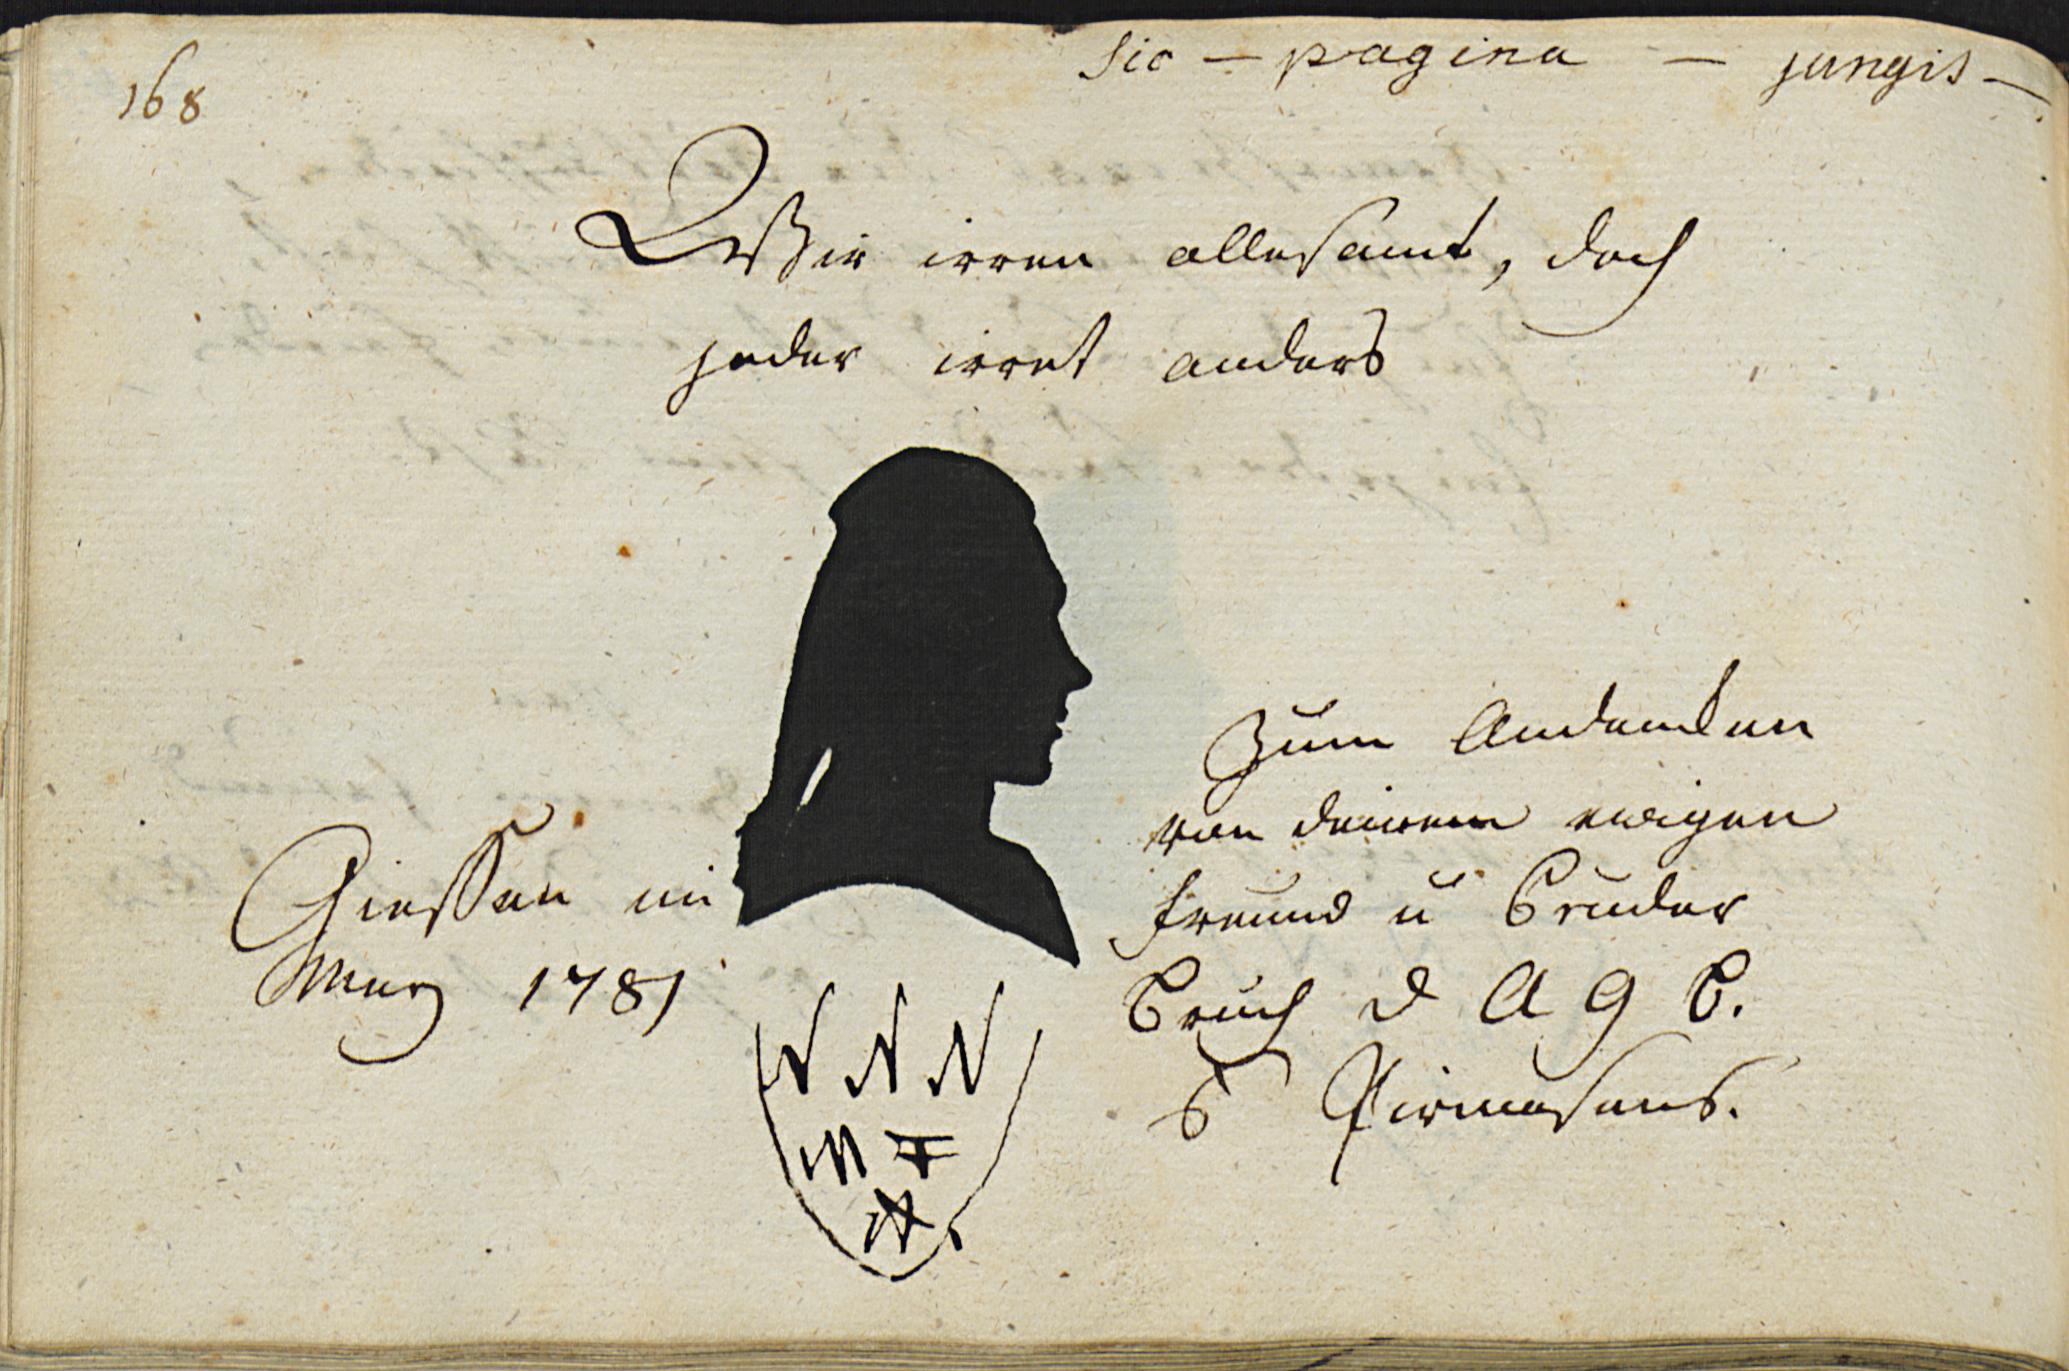 168
sic — pagina — jungis —
Wir irren allesamt, doch
jeder irret anders
Zum Andencken
von deinem ewigen
Freund u Bruder
Giessen im
Merz 1781
Bruch d A G B.
Pirmasens.
N N N
M